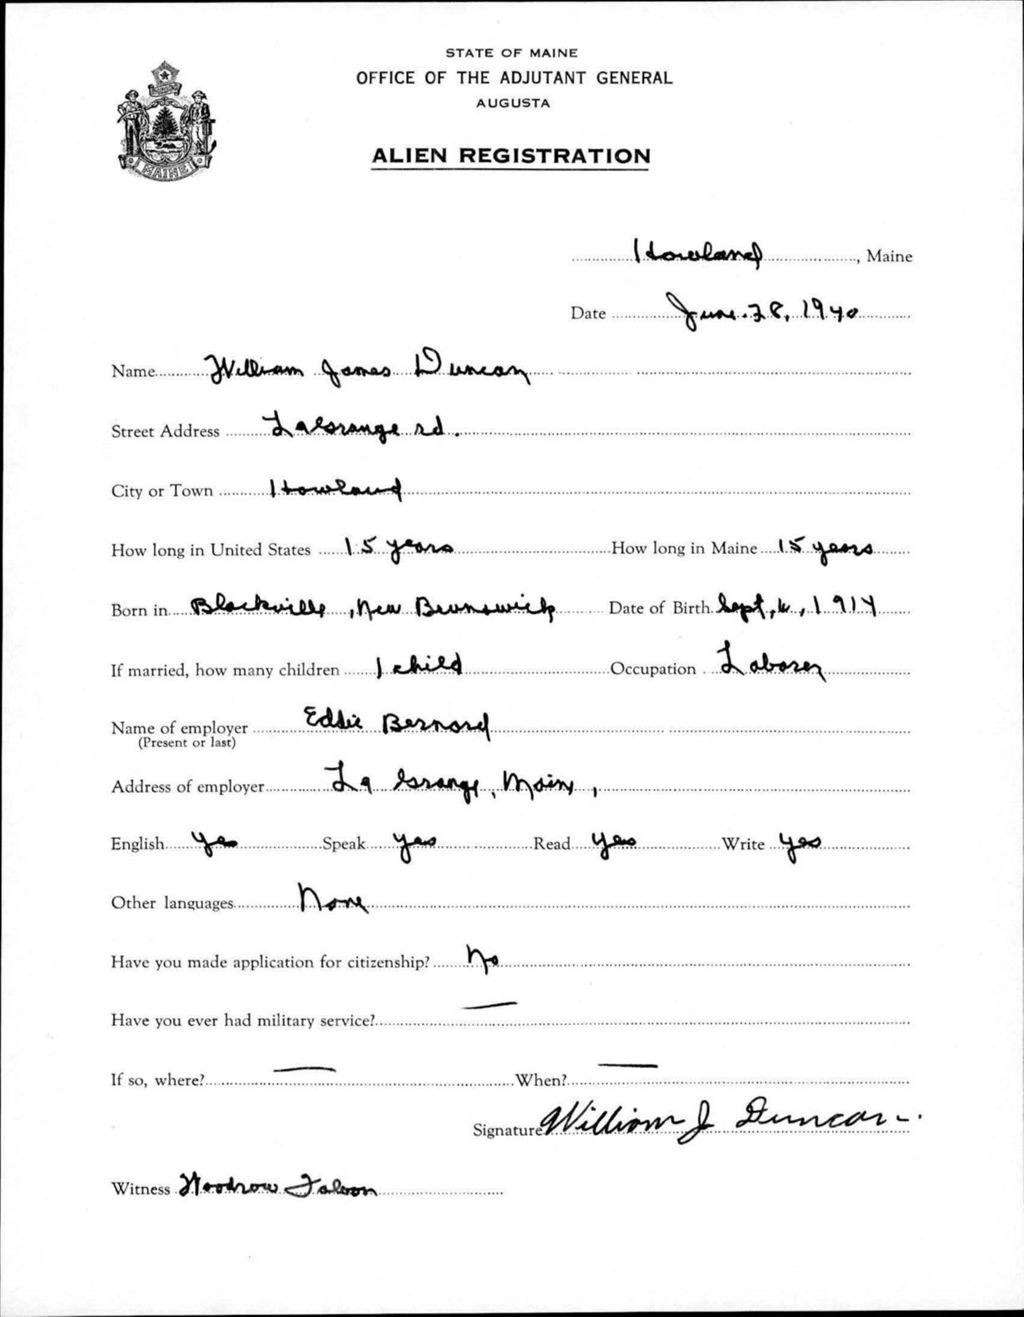 STATE OF MAINE
OFFICE OF THE ADJUTANT GENERAL
AUGUSTA
ALIEN REGISTRATION
MAINE
Howland, Maine
Date June. 28, 1940
Name William James Duncan
Street Address LaGrange rd.
City or Town Howland
How long in United States 15 years How long in Maine 15 years
Born in Blackville, New Brunswick Date of Birth Sept, 6, 1914
If married, how many children 1 child Occupation Laborer
Name of employer Eddie Bernard
(Present or last)
Address of employer La Grange, Maine,
English Yes Speak Yes Read Yes Write Yes
Other languages None
Have you made application for citizenship? No
Have you ever had military service? —
If so, where? — When? —
Signature William J Duncan.
Witness Woodrow